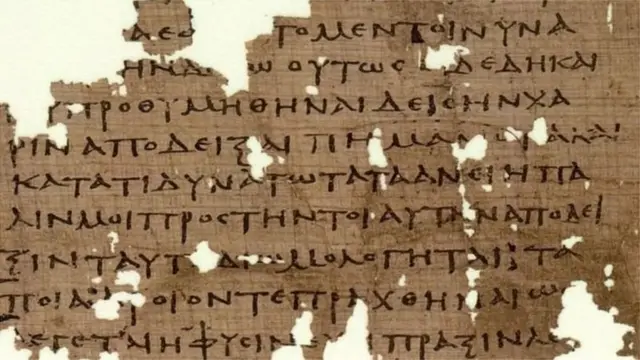 ΤΟΜΕΝΤΟΙΝΥΝΑ
ΗΝΔ Ω ΟΥΤΩϹ ΔΕΔΗΚΑΙ
ΠΡΟΘΥΜΗΘΗΝΑΙΔΕΙϹΗΝΧΑ
ΡΙΝΑΠΟΔΕΙΞΑΙ ΠΗΜΑ
ΚΑΤΑΤΙΔΥΝΑΤΩΤΑΤΑΑΝΕΙΗΠΑ
ΛΙΝΜΟΙΠΡΟϹΤΗΝΤΟΙΑΥΤΗΝΑΠΟΔΕΙ
ΞΙΝΤΑΥΤΑ ΟΜΟΛΟΓΗΤΑΙ ΤΑ
ΠΟΙΑ ΟΙΟΝΤΕΠΡΑΧΘΗΝΑΙΩ
ΓΕΤΑΙΗΦΥϹΙΝ ΙΠΡΑΞΙΝΛΕ